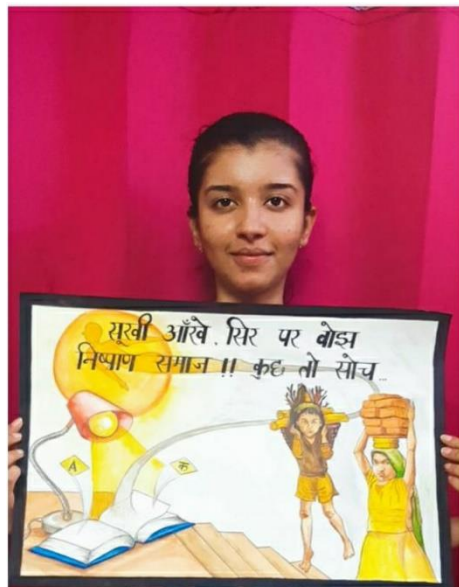 सूखी आँखे . सिर पर बोझ
निष्पाण समाज !! कुछ तो सोच ...
A
क